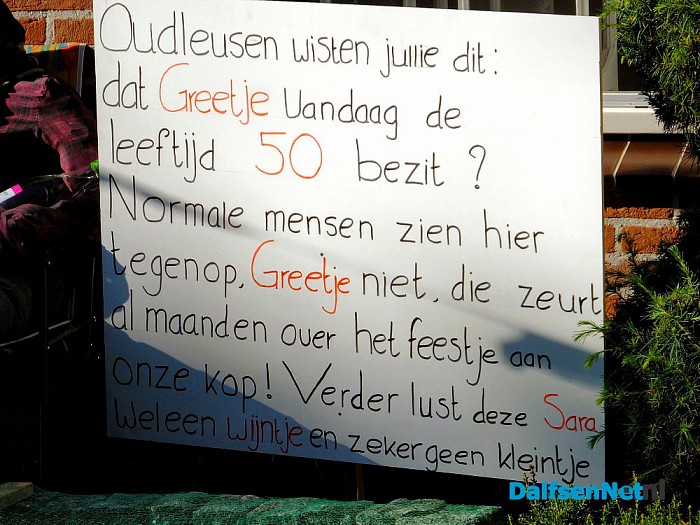 Oudleusen wisten jullie dit:
dat Greetje Vandaag de
leeftijd 50 bezit?
Normale mensen zien hier
tegenop, Greetje niet, die zeurt
al maanden over het feestje aan
onze kop! Verder lust deze Sara
Wel een wijntje en zeker geen kleintje
DalfsenNet.nl